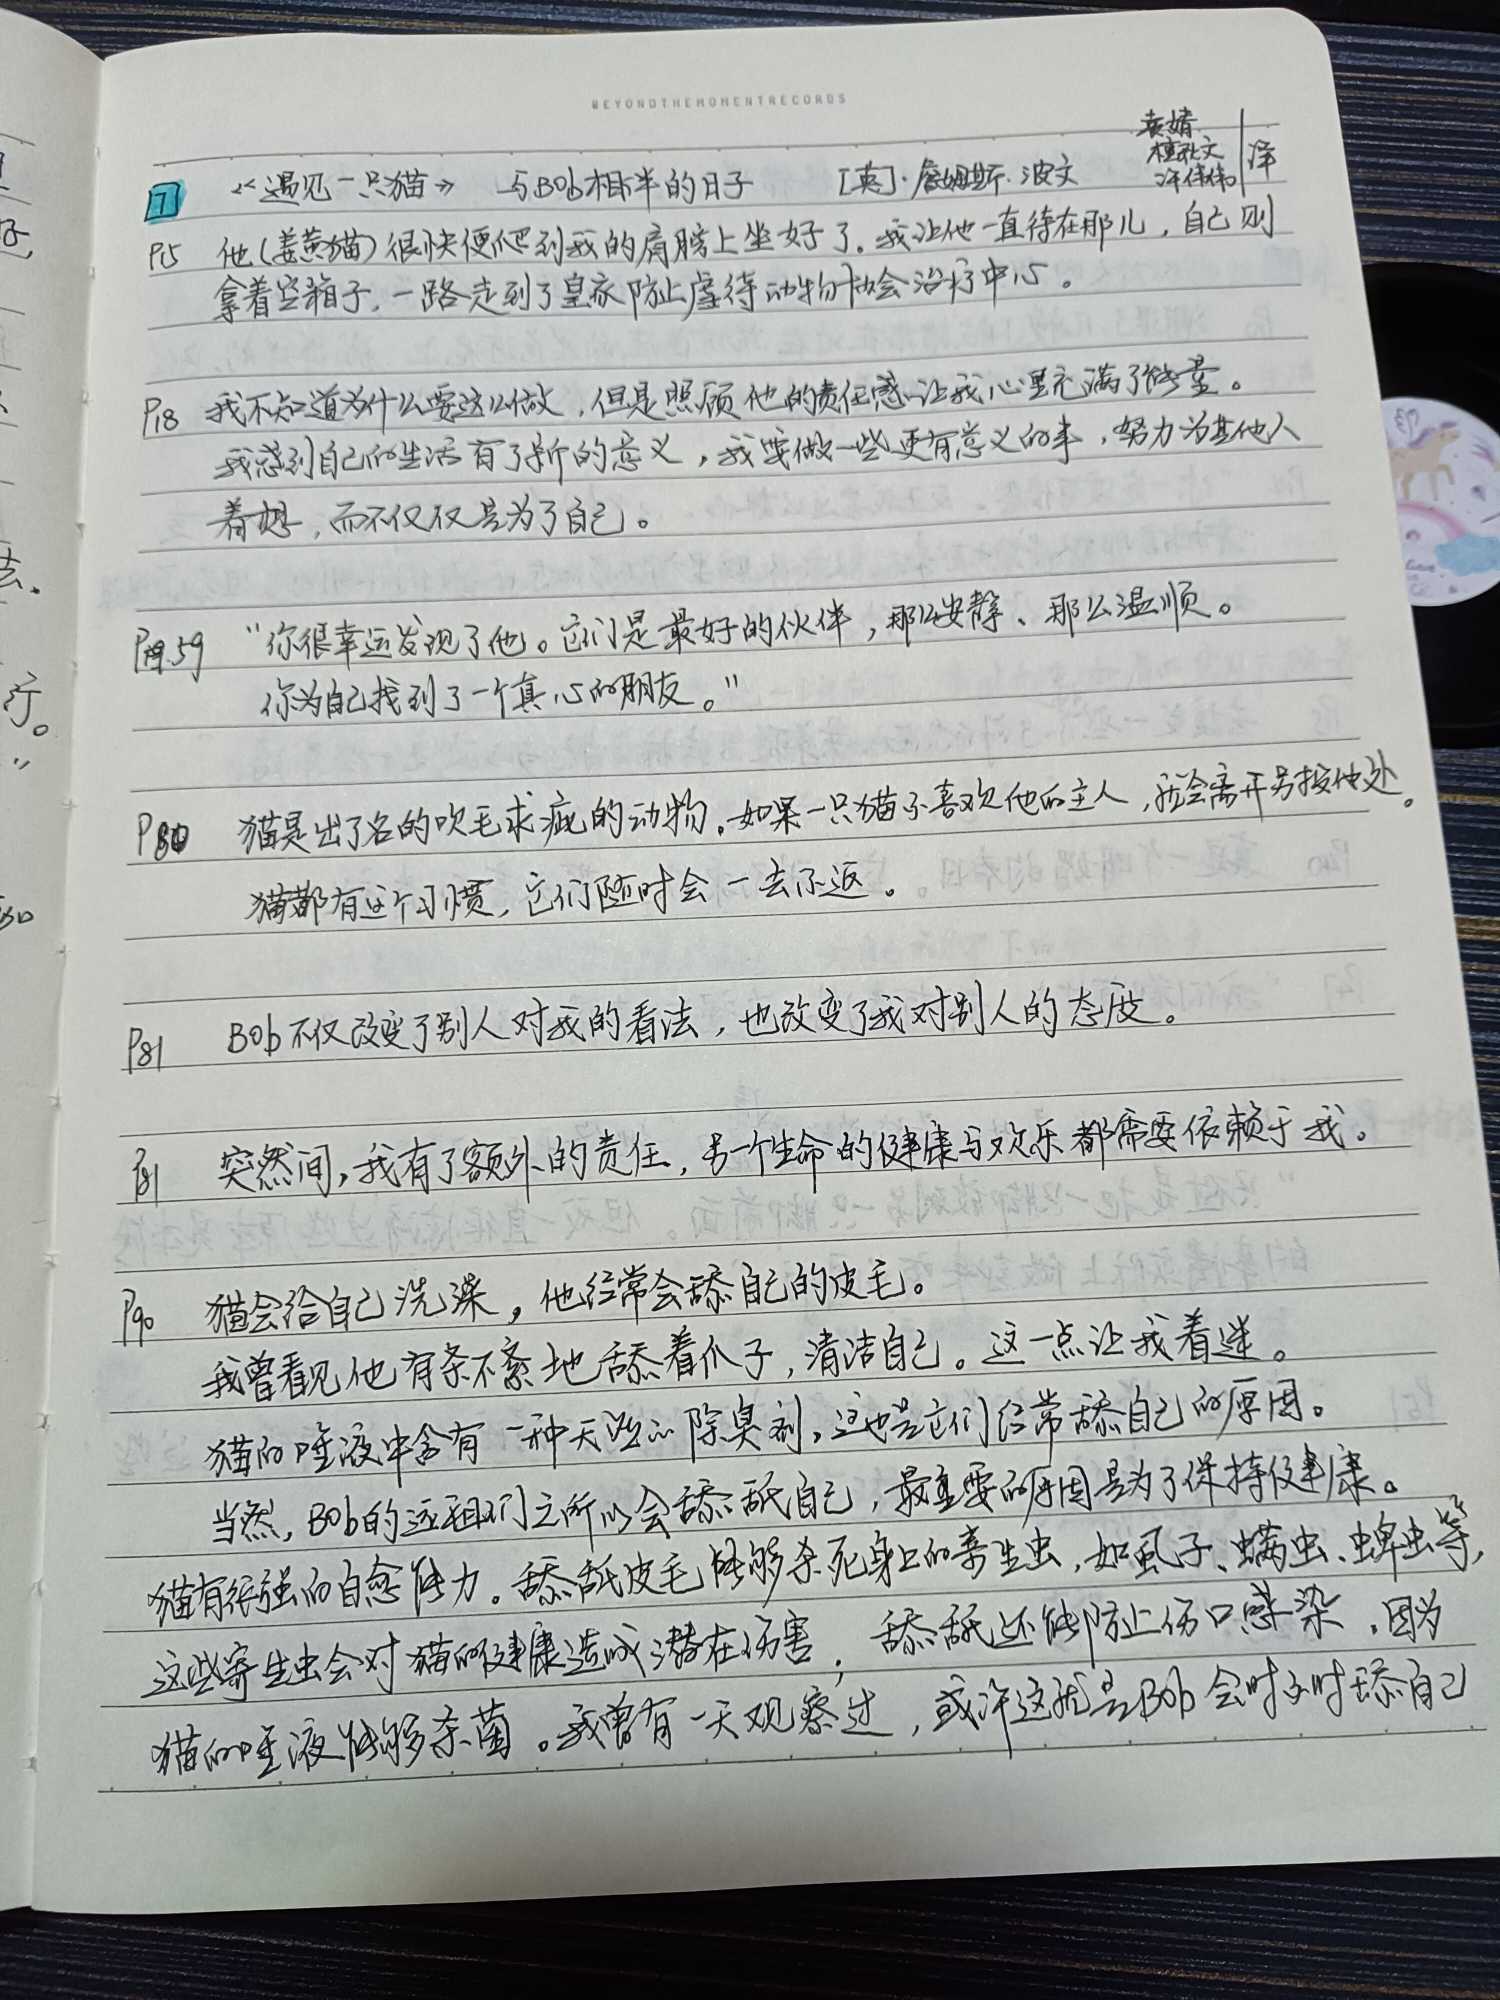 BEYONDTHEMOMENTRECORDS
袁婧
7 《遇见一只猫》 与Bob相伴的日子 [英]·詹姆斯·波文 译
P15 他(姜黄猫)很快便爬到我的肩膀上坐好了。我让他一直待在那儿，自己则
拿着空箱子，一路走到了皇家防止虐待动物协会治疗中心。
P18 我不知道为什么要这么做，但是照顾他的责任感让我心里充满了能量。
我感到自己的生活有了新的意义，我要做一些更有意义的事，努力为其他人
着想，而不仅仅是为了自己。
P59 “你很幸运发现了他。它们是最好的伙伴，那么安静、那么温顺。
你为自己找到了一个真心的朋友。”
P80 猫是出了名的吹毛求疵的动物。如果一只猫不喜欢他的主人，就会离开另投他处。
猫都有这个习惯，它们随时会一去不返。
P81 Bob不仅改变了别人对我的看法，也改变了我对别人的态度。
P81 突然间，我有了额外的责任，另一个生命的健康与欢乐都需要依赖于我。
P90 猫会给自己洗澡，他经常会舔自己的皮毛。
我曾看见他有条不紊地舔着爪子，清洁自己。这一点让我着迷。
猫的唾液中含有一种天然的除臭剂，这也是它们经常舔自己的原因。
当然，Bob的远祖们之所以会舔舐自己，最重要的原因是为了保持健康。
猫有很强的自愈能力。舔舐皮毛能够杀死身上的寄生虫，如虱子、螨虫、蜱虫等，
这些寄生虫会对猫的健康造成潜在伤害，舔舐还能防止伤口感染，因为
猫的唾液能够杀菌。我曾有一天观察过，或许这就是Bob会时不时舔自己